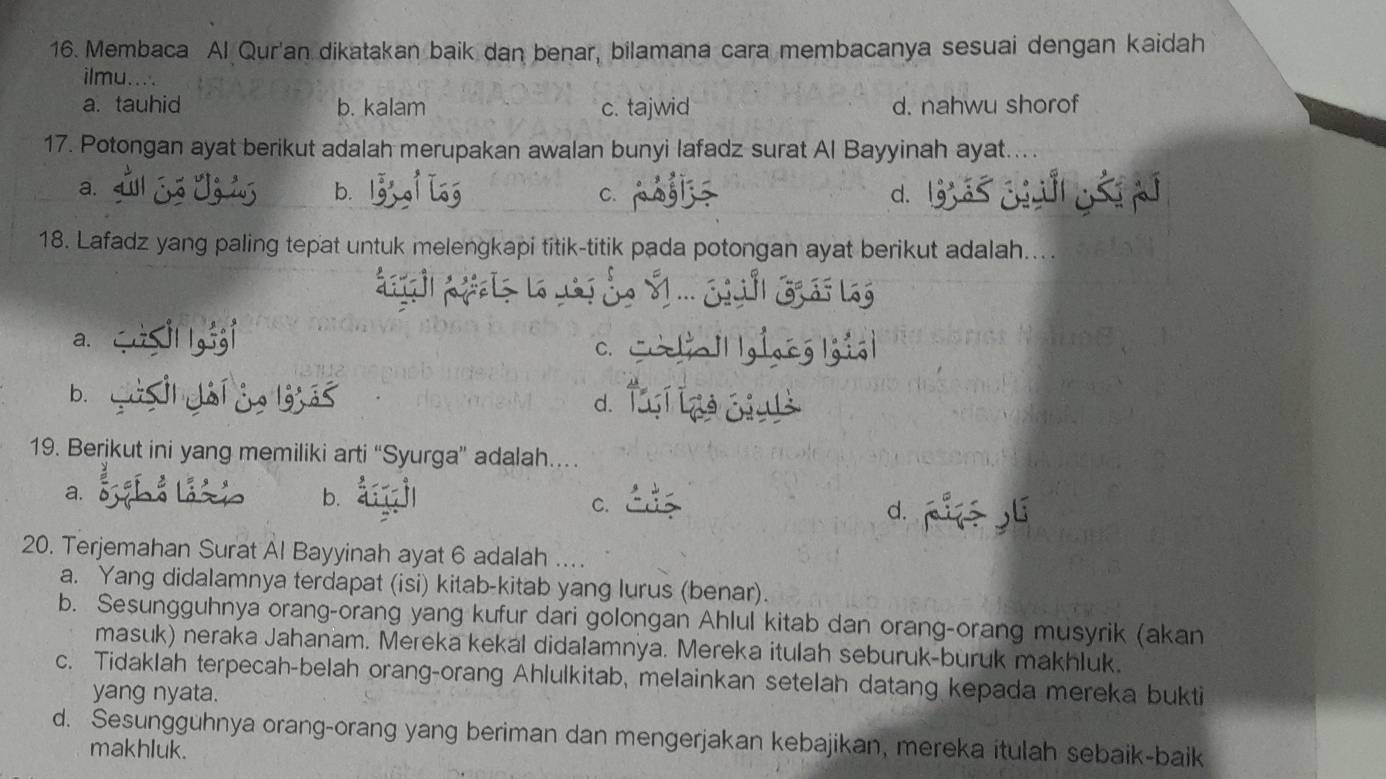 16. Membaca Al Qur'an dikatakan baik dan benar, bilamana cara membacanya sesuai dengan kaidah
ilmu....
a. tauhid b. kalam c. tajwid d. nahwu shorof
17. Potongan ayat berikut adalah merupakan awalan bunyi lafadz surat Al Bayyinah ayat....
a. رَسُوْلٌ مِّنَ اللّٰهِ b. وَمَآ اُمِرُوْٓا c. جَزَاۤؤُهُمْ d. لَمْ يَكُنِ الَّذِيْنَ كَفَرُوْا
18. Lafadz yang paling tepat untuk melengkapi titik-titik pada potongan ayat berikut adalah....
وَمَا تَفَرَّقَ الَّذِيْنَ ... اِلَّا مِنْۢ بَعْدِ مَا جَاۤءَتْهُمُ الْبَيِّنَةُ
a. اُوْتُوا الْكِتٰبَ c. اٰمَنُوْا وَعَمِلُوا الصّٰلِحٰتِ
b. كَفَرُوْا مِنْ اَهْلِ الْكِتٰبِ d. خٰلِدِيْنَ فِيْهَآ اَبَدًا
19. Berikut ini yang memiliki arti “Syurga” adalah....
a. صُحُفًا مُّطَهَّرَةً b. الْبَيِّنَةُ c. جَنّٰتُ d. نَارِ جَهَنَّمَ
20. Terjemahan Surat Al Bayyinah ayat 6 adalah ....
a. Yang didalamnya terdapat (isi) kitab-kitab yang lurus (benar).
b. Sesungguhnya orang-orang yang kufur dari golongan Ahlul kitab dan orang-orang musyrik (akan
masuk) neraka Jahanam. Mereka kekal didalamnya. Mereka itulah seburuk-buruk makhluk.
c. Tidaklah terpecah-belah orang-orang Ahlulkitab, melainkan setelah datang kepada mereka bukti
yang nyata.
d. Sesungguhnya orang-orang yang beriman dan mengerjakan kebajikan, mereka itulah sebaik-baik
makhluk.